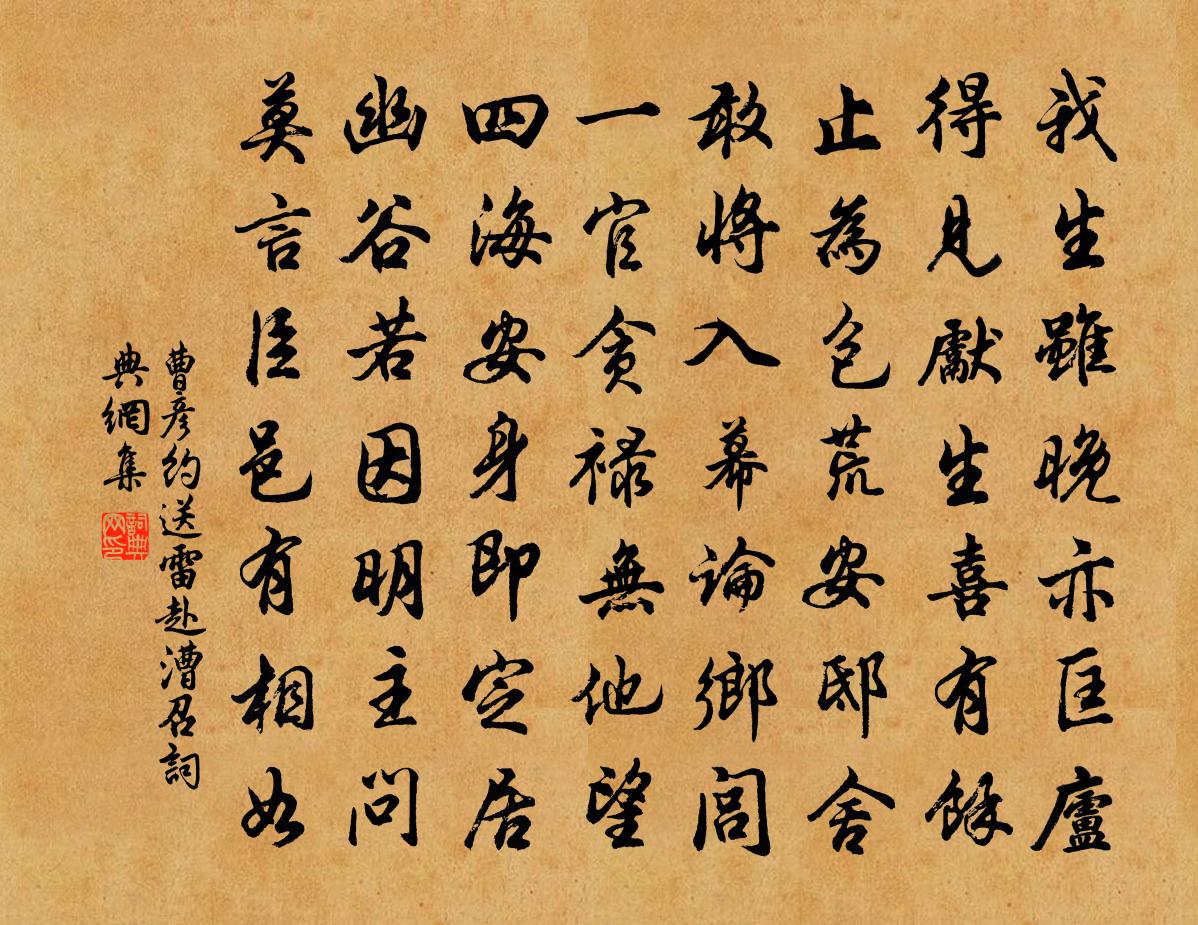 我生雖晚亦匡廬
得見獻生喜有餘
止為包荒安邸舍
敢將入幕論鄉閭
一官貪祿無他望
四海安身即定居
幽谷若因明主問
莫言臣邑有相如
曹彥約送雷赴漕召詞
典網集
詞典網印